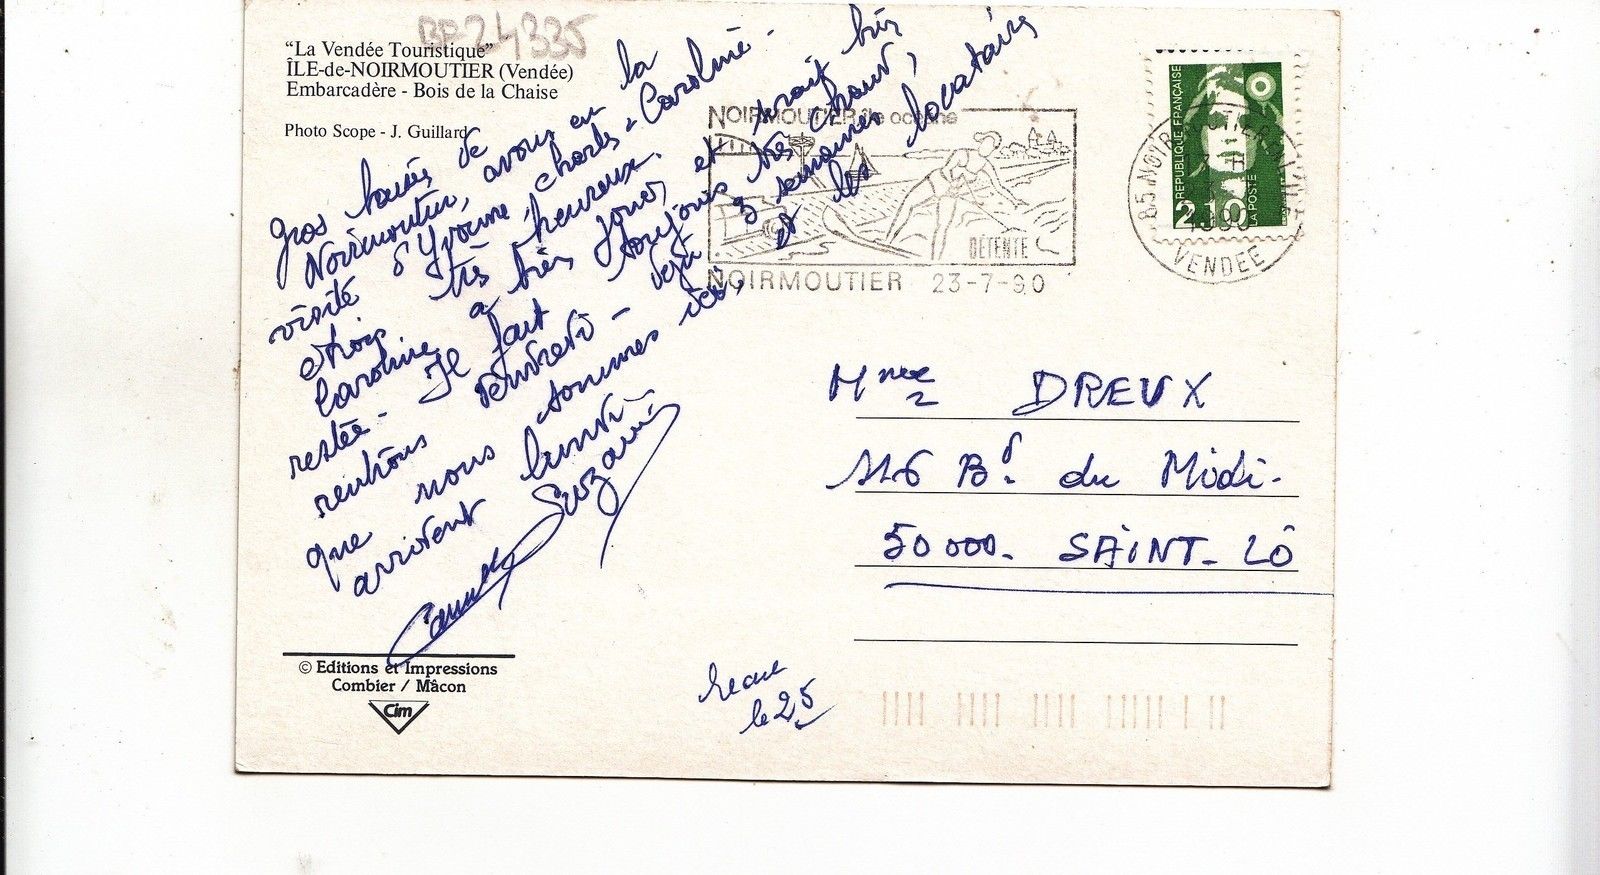 BP24335
"La Vendée Touristique"
ÎLE-de-NOIRMOUTIER (Vendée)
Embarcadère - Bois de la Chaise
Photo Scope - J. Guillard
Gros baisers de
Noirmoutier, avons eu la
visite d'Yvonne, Charles, Caroline -
étions très heureux.
Caroline a bien joué, et serait bien
restée - Il fait toujours très chaud,
rentrons vendredi - déjà 3 semaines
que nous sommes ici, et les locataires
arrivent lundi -
Suzanne
NOIRMOUTIER île océane
DÉTENTE
NOIRMOUTIER 23-7-90
RÉPUBLIQUE FRANÇAISE
2,10
LA POSTE
85 NOIRMOUTIER EN L'ILE
1990
VENDEE
Mme DREUX
116 Bd. du Midi -
50000 - SAINT-LÔ
© Editions et Impressions
Combier / Mâcon
Cim
le 25